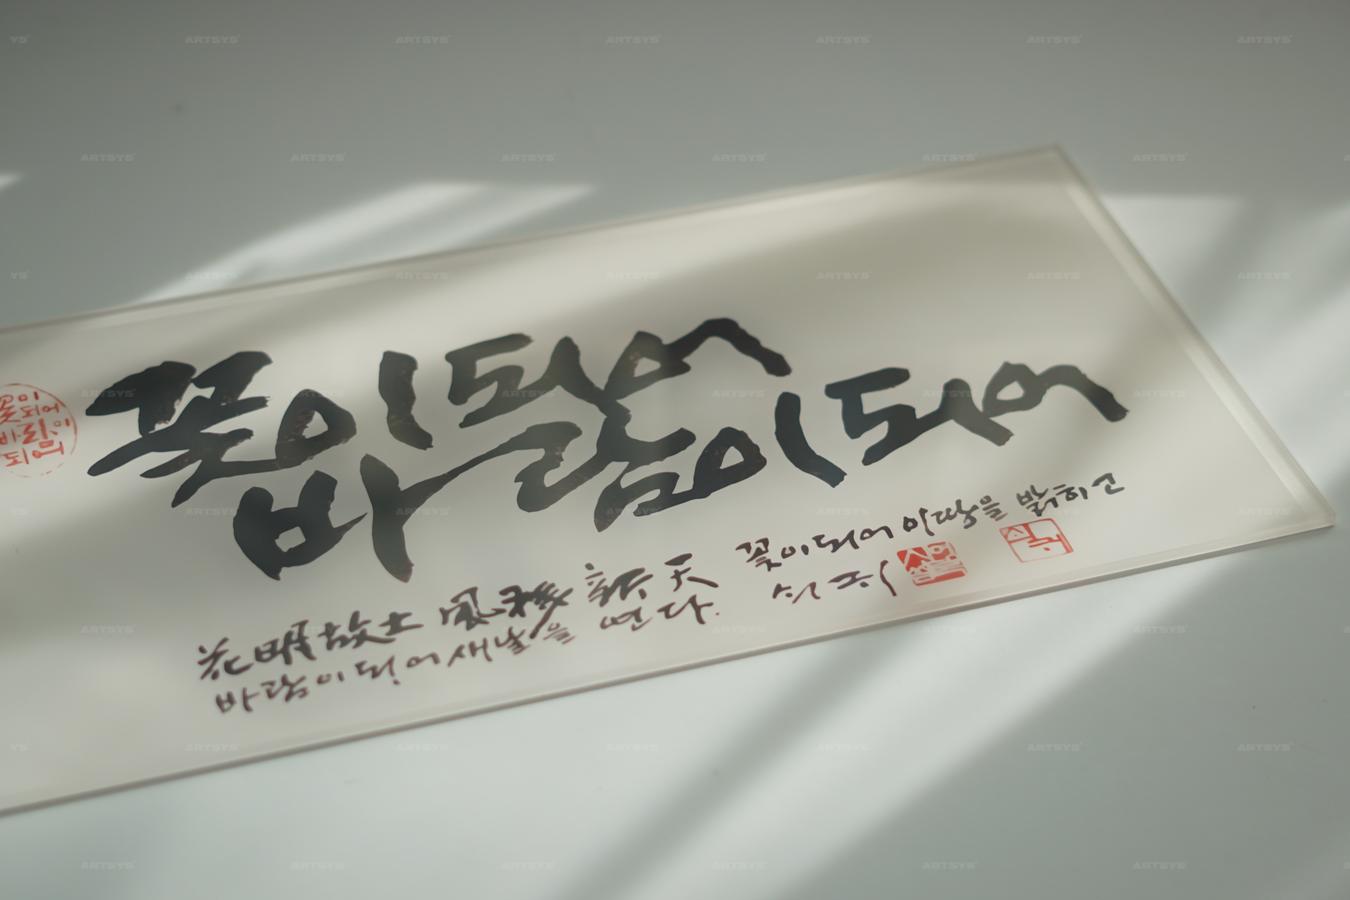 꽃이되어
바람이되어
花明故土 風移新天
꽃이되어 이땅을 밝히고
바람이되어 새날을 연다.
꽃이
되어
바람이
되어
ARTSYS